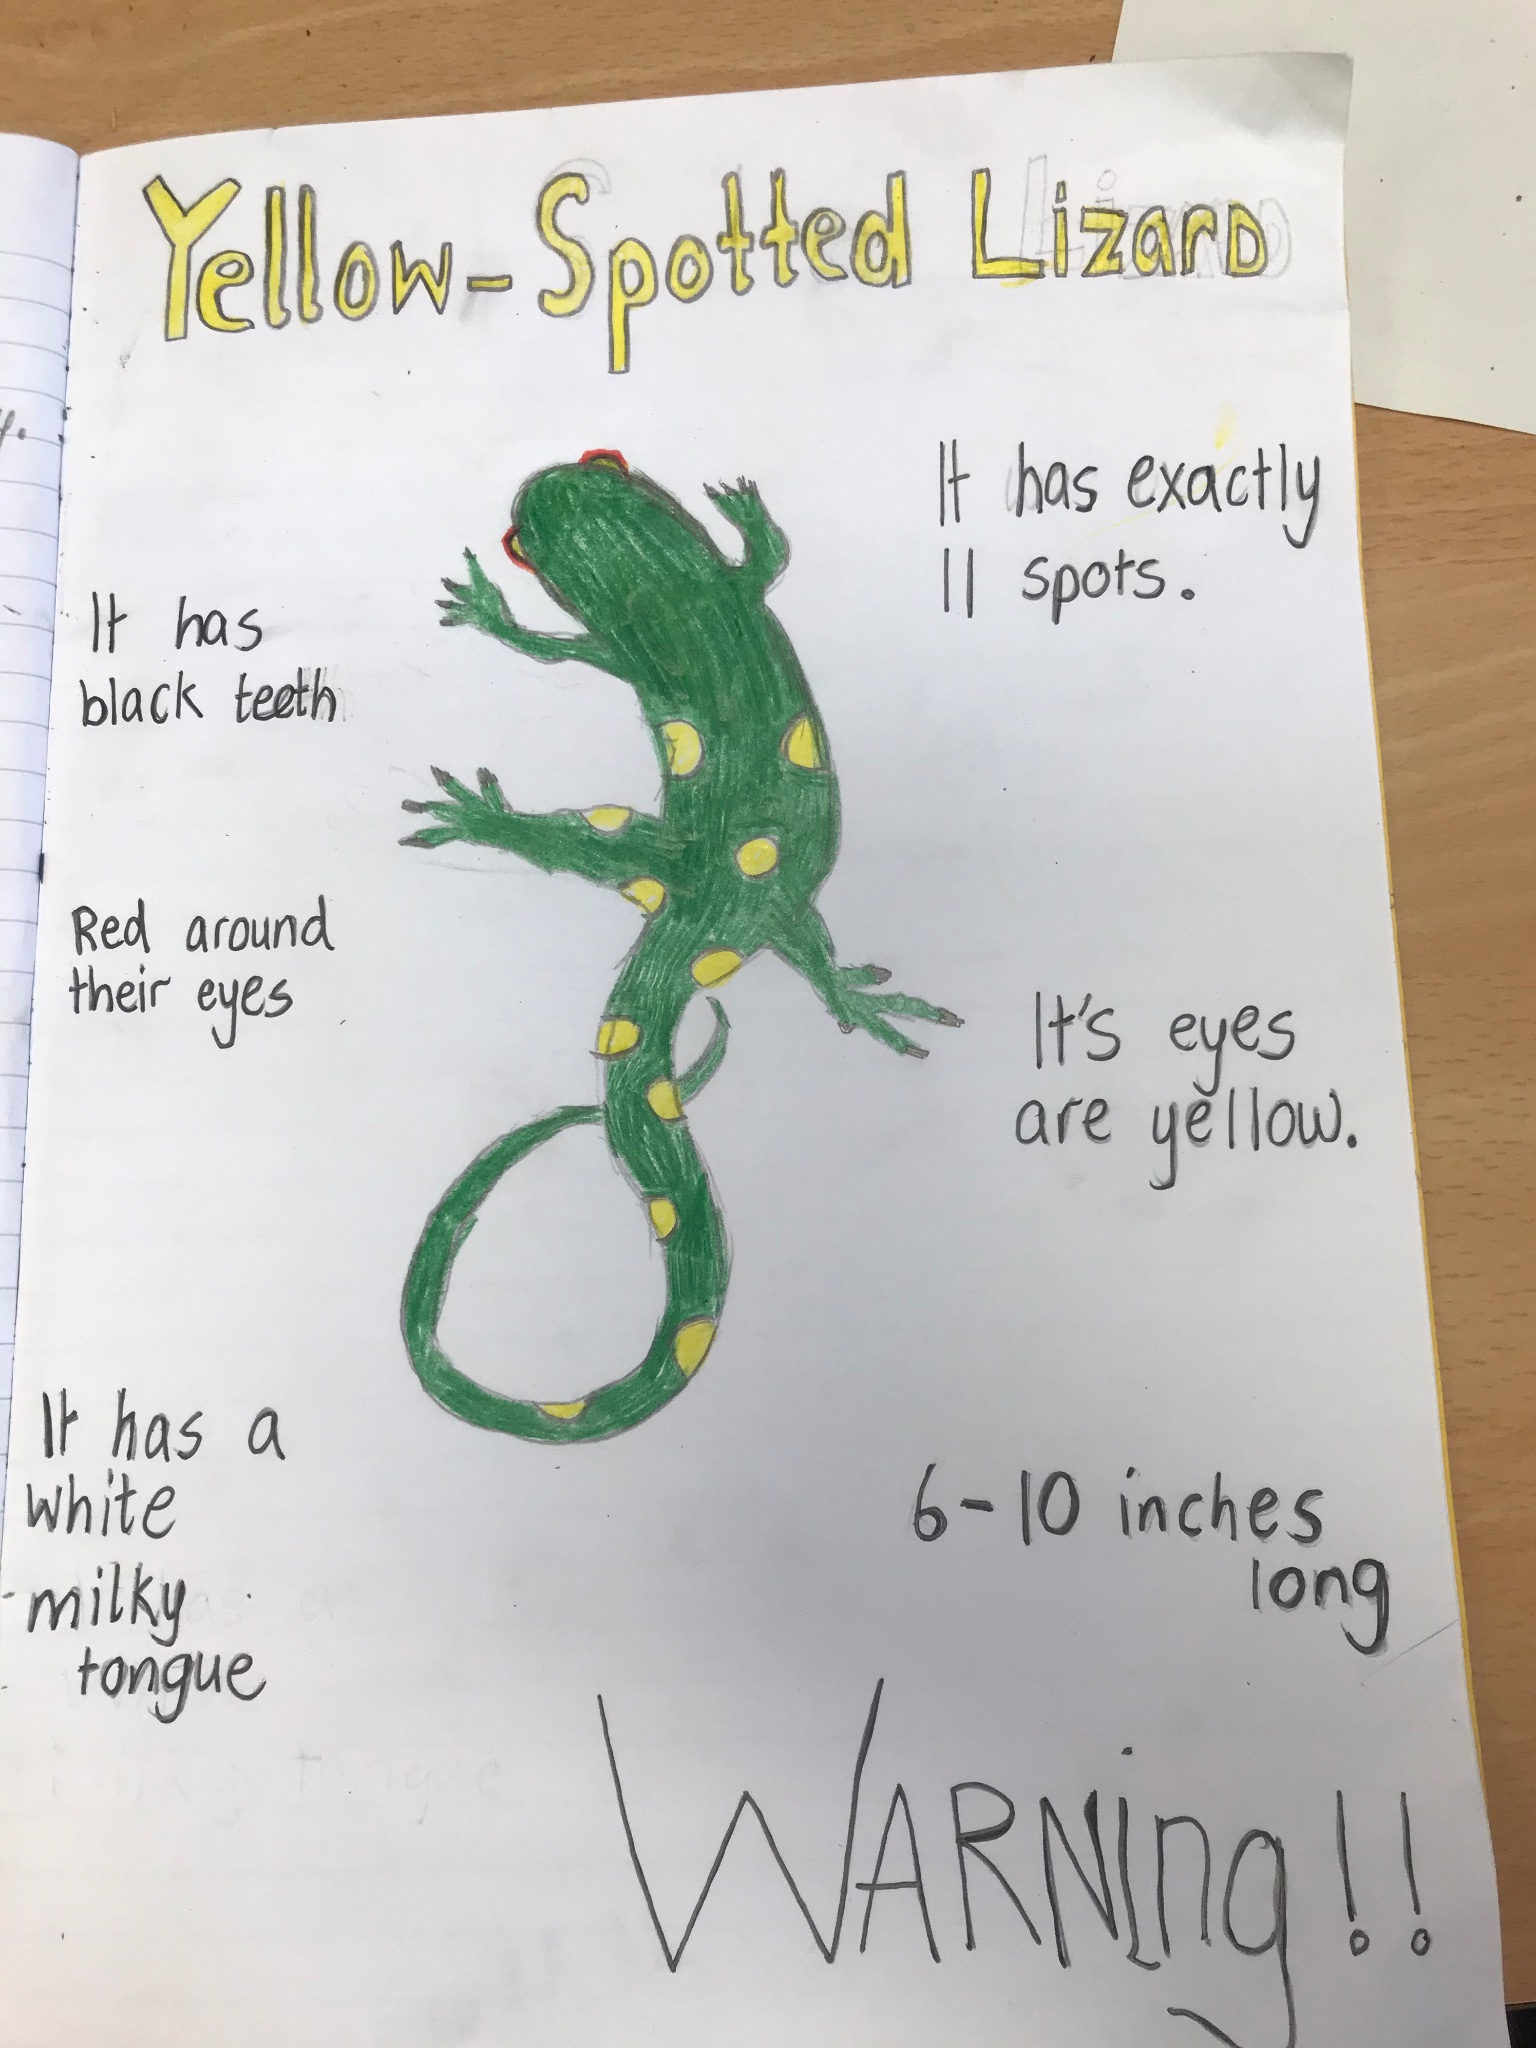 Yellow-Spotted Lizard
It has exactly
11 spots.
It has
black teeth
Red around
their eyes
It's eyes
are yellow.
It has a
white
milky
tongue
6-10 inches
long
WARNing!!